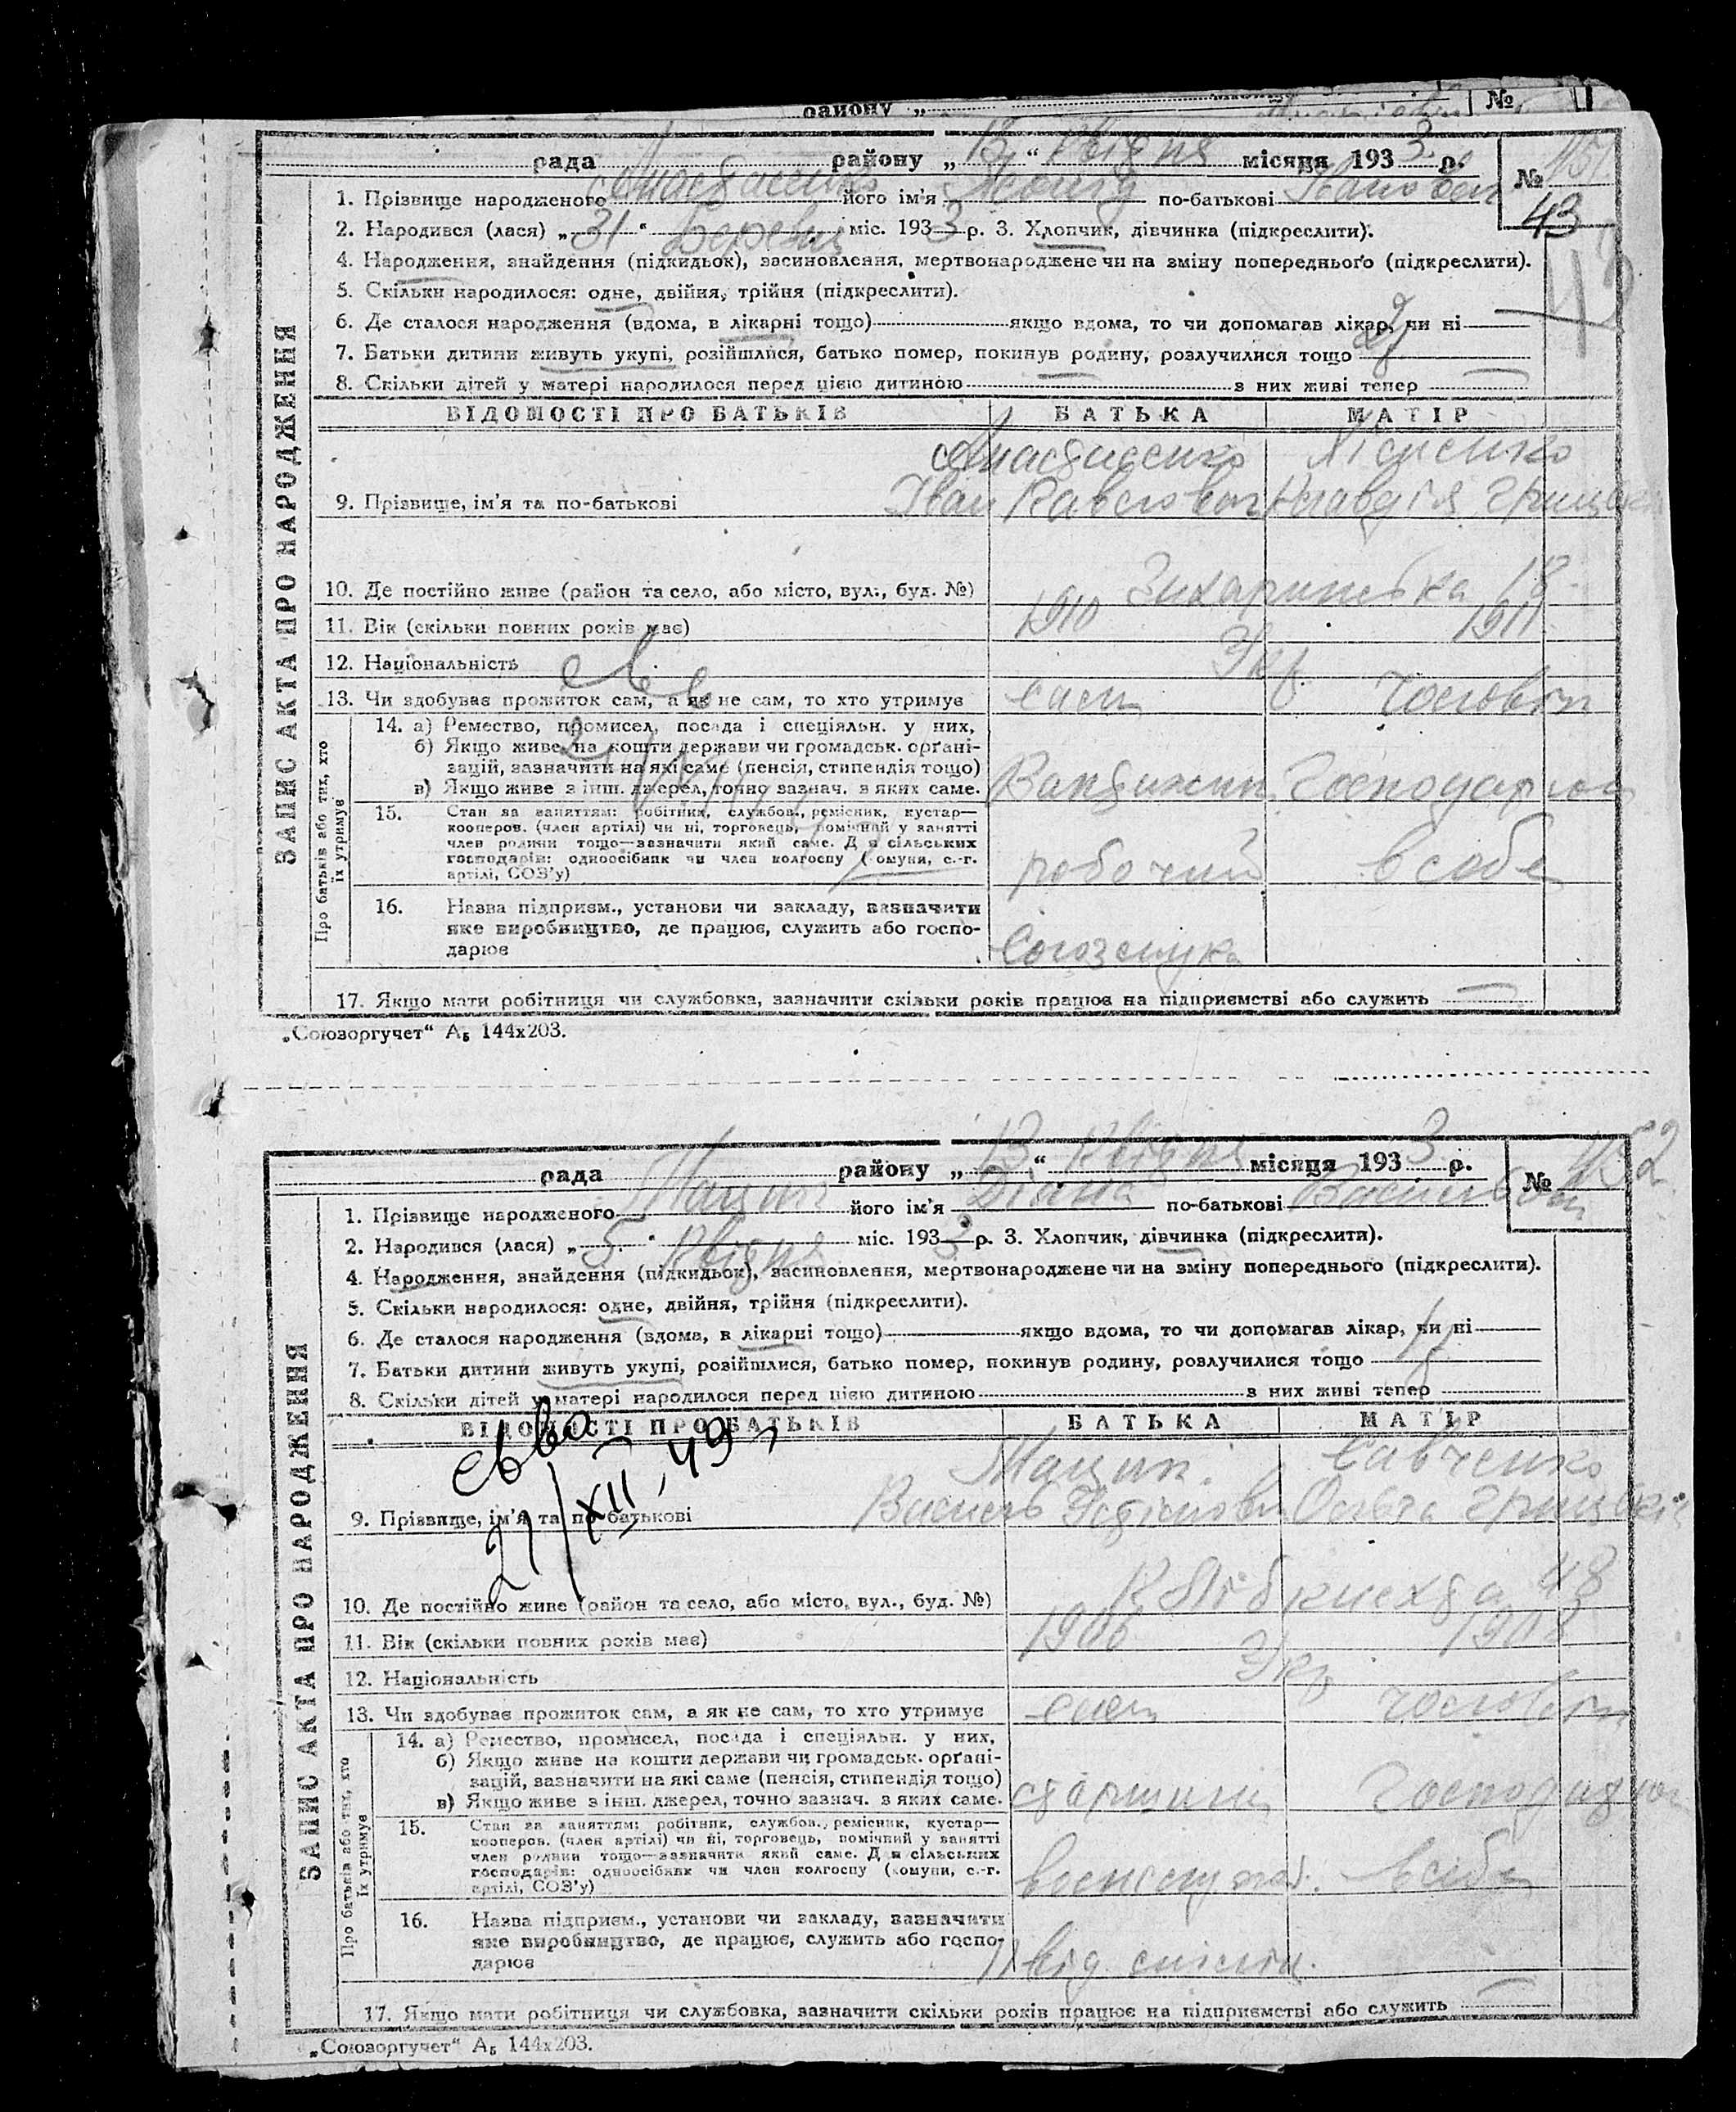 району „ №
рада району „13“ квітня місяця 1933 р. №
43
1. Прізвище народженого Анастасенко його ім'я по-батькові Іванович
2. Народився (лася) „31“ Березня міс. 1933 р. 3. Хлопчик, дівчинка (підкреслити).
4. Народження, знайдення (підкидьок), засиновлення, мертвонароджене чи на зміну попереднього (підкреслити).
43
5. Скільки народилося: одне, двійня, трійня (підкреслити).
6. Де сталося народження (вдома, в лікарні тощо) якщо вдома, то чи допомагав лікар, чи ні
7. Батьки дитини живуть укупі, розійшлися, батько помер, покинув родину, розлучилися тощо
8. Скільки дітей у матері народилося перед цією дитиною 2 з них живі тепер
ЗАПИС АКТА ПРО НАРОДЖЕННЯ
ВІДОМОСТІ ПРО БАТЬКІВ БАТЬКА МАТІР
Анастасенко Лісненко
9. Прізвище, ім'я та по-батькові Іван Павлович Клавдія
10. Де постійно живе (район та село, або місто, вул., буд. №) 18
11. Вік (скільки повних років має) 1910 1911
12. Національність Укр
13. Чи здобуває прожиток сам, а як не сам, то хто утримує сам чоловік
Про батьків або тих, хто їх утримує
14. а) Ремество, промисел, посада і спеціяльн. у них,
б) Якщо живе на кошти держави чи громадськ. орґані-
зацій, зазначити на які саме (пенсія, стипендія тощо)
в) Якщо живе з інш. джерел, точно зазнач. з яких саме. Вантажник Господарює
15. Стан за заняттям: робітник, службов., ремісник, кустар—
кооперов. (член артілі) чи ні, торговець, помічний у занятті
член родини тощо—зазначити який саме. Для сільських
господарів: одноосібник чи член колгоспу (комуни, с.-г.
артілі, СОЗ'у) робочий в себе
16. Назва підприєм., установи чи закладу, зазначити
яке виробництво, де працює, служить або госпо-
дарює Союзмука
17. Якщо мати робітниця чи службовка, зазначити скільки років працює на підприємстві або служить
„Союзоргучет“ А₅ 144х203.
рада району „13“ квітня місяця 1933 р. № 152
1. Прізвище народженого Мацип його ім'я Діана по-батькові
2. Народився (лася) „5“ Квітня міс. 1933 р. 3. Хлопчик, дівчинка (підкреслити).
4. Народження, знайдення (підкидьок), засиновлення, мертвонароджене чи на зміну попереднього (підкреслити).
5. Скільки народилося: одне, двійня, трійня (підкреслити).
6. Де сталося народження (вдома, в лікарні тощо) якщо вдома, то чи допомагав лікар, чи ні
7. Батьки дитини живуть укупі, розійшлися, батько помер, покинув родину, розлучилися тощо
8. Скільки дітей у матері народилося перед цією дитиною 1 з них живі тепер
ЗАПИС АКТА ПРО НАРОДЖЕННЯ
ВІДОМОСТІ ПРО БАТЬКІВ БАТЬКА МАТІР
Мацип Савченко
9. Прізвище, ім'я та по-батькові Василь Ольга
10. Де постійно живе (район та село, або місто, вул., буд. №) К. Лібкнехта 48
11. Вік (скільки повних років має) 1906
12. Національність Укр
13. Чи здобуває прожиток сам, а як не сам, то хто утримує сам чоловік
Про батьків або тих, хто їх утримує
14. а) Ремество, промисел, посада і спеціяльн. у них,
б) Якщо живе на кошти держави чи громадськ. орґані-
зацій, зазначити на які саме (пенсія, стипендія тощо)
в) Якщо живе з інш. джерел, точно зазнач. з яких саме. старшина
15. Стан за заняттям: робітник, службов., ремісник, кустар—
кооперов. (член артілі) чи ні, торговець, помічний у занятті
член родини тощо—зазначити який саме. Для сільських
господарів: одноосібник чи член колгоспу (комуни, с.-г.
артілі, СОЗ'у) в себе
16. Назва підприєм., установи чи закладу, зазначити
яке виробництво, де працює, служить або госпо-
дарює
17. Якщо мати робітниця чи службовка, зазначити скільки років працює на підприємстві або служить
„Союзоргучет“ А₅ 144х203.